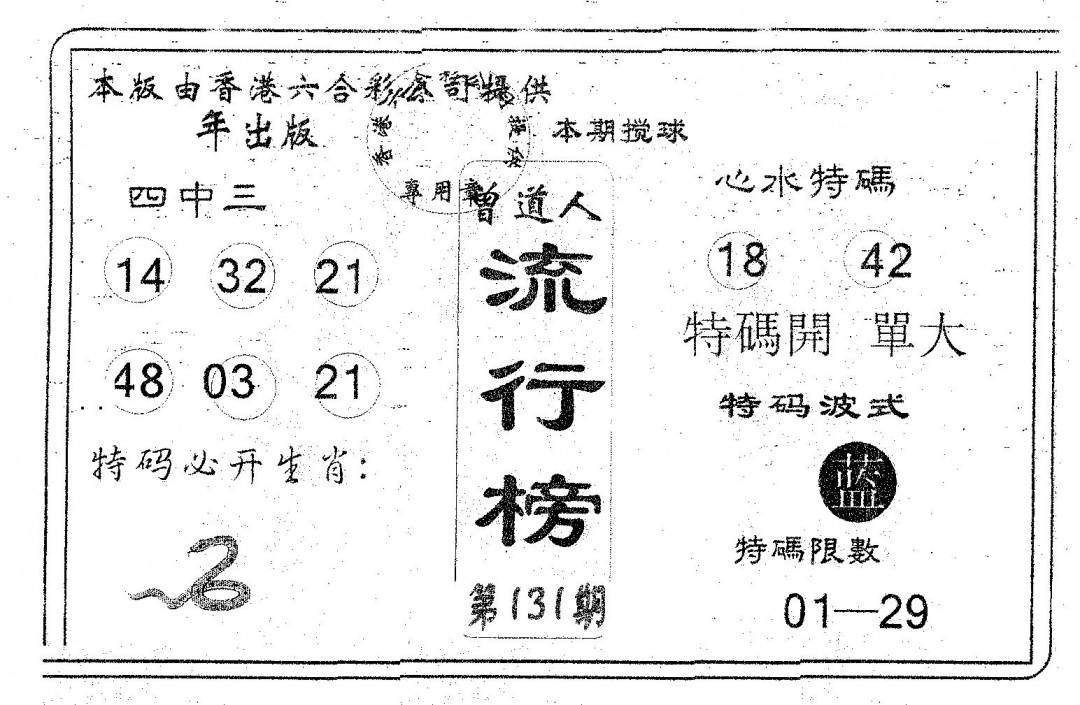 本版由香港六合彩會訂提供
年出版
本期搅球
香港
專用章
四中三
14 32 21
48 03 21
特码必开生肖:
曾道人
流行榜
第131期
心水特碼
18 42
特碼開 單大
特码波式
蓝
特碼限數
01—29